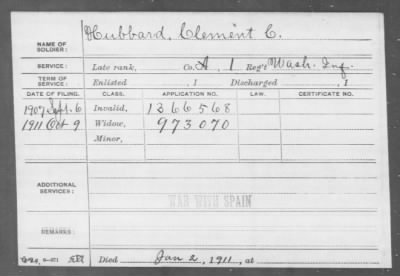 NAME OF SOLDIER: Hubbard, Clement C.
SERVICE: Late rank, Co. A, 1 Reg't Wash. Inf.
TERM OF SERVICE: Enlisted , 1 Discharged , 1
DATE OF FILING. CLASS. APPLICATION NO. LAW. CERTIFICATE NO.
1907 Sept. 6 Invalid, 1366568
1911 Oct 9 Widow, 973070
Minor,
ADDITIONAL SERVICES:
WAR WITH SPAIN
REMARKS:
Died Jan 2, 1911, at